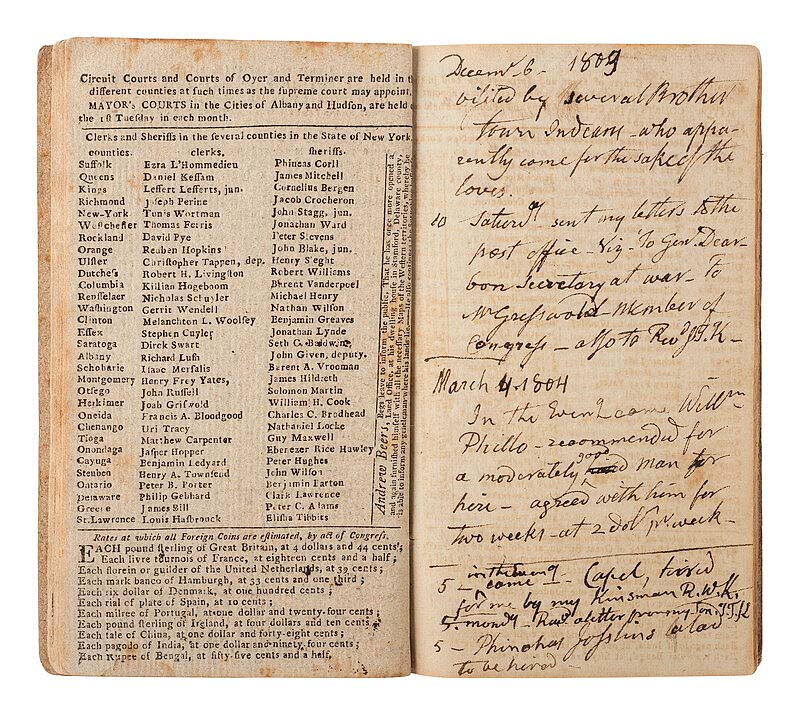 Circuit Courts and Courts of Oyer and Terminer are held in th
different counties at such times as the supreme court may appoint.
MAYOR's COURTS in the Cities of Albany and Hudson, are held
the 1st Tuesday in each month.
Clerks and Sheriffs in the several counties in the State of New York
counties. clerks. sheriffs.
Suffolk Ezra L'Hommedieu Phineas Corll
Queens Daniel Kessam James Mitchell
Kings Leffert Lefferts, jun. Cornelius Bergen
Richmond Joseph Perine Jacob Crocheron
New-York Tunis Wortman John Stagg, jun.
Westchester Thomas Ferris Jonathan Ward
Rockland David Pye Peter Stevens
Orange Reuben Hopkins John Blake, jun.
Ulster Christopher Tappen, dep. Henry Sleght
Dutchess Robert H. Livingston Robert Williams
Columbia Killian Hogeboom Bhrent Vanderpoel
Rensselaer Nicholas Schuyler Michael Henry
Washington Gerrit Wendell Nathan Wilson
Clinton Melanchton L. Woolsey Benjamin Greaves
Essex Stephen Cuyler Jonathan Lynde
Saratoga Dirck Swart Seth C. Baldwine,
Albany Richard Lush John Given, deputy.
Schoharie Isaac Mersalis Barent A. Vrooman
Montgomery Henry Frey Yates, James Hildreth
Otsego John Russell Solomon Martin
Herkimer Joab Griswold William H. Cook
Oneida Francis A. Bloodgood Charles C. Brodhead
Chenango Uri Tracy Nathaniel Locke
Tioga Matthew Carpenter Guy Maxwell
Onondaga Jasper Hopper Ebenezer Rice Hawley
Cayuga Benjamin Ledyard Peter Hughes
Steuben Henry A. Townsend John Wilson
Ontario Peter B. Porter Benjamin Barton
Delaware Philip Gebhard Clark Lawrence
Greene James Bill Peter C. Adams
St. Lawrence Louis Hasbrouck Elisha Tibbits
Andrew Beers, Begs leave to inform the public, That he has once more opened a
Land Office, at his dwelling house in Stamford, Delaware county,
and again furnished himself with all the necessary Maps of the Western territories, whereby he
is able to inform any gentleman where his lands lie.
Rates at which all Foreign Coins are estimated, by act of Congress.
EACH pound sterling of Great Britain, at 4 dollars and 44 cents;
Each livre tournois of France, at eighteen cents and a half;
Each florein or guilder of the United Netherlands, at 39 cents;
Each mark banco of Hamburg, at 33 cents and one third;
Each six dollar of Denmark, at one hundred cents;
Each rial of plate of Spain, at 10 cents;
Each milree of Portugal, at one dollar and twenty-four cents;
Each pound sterling of Ireland, at four dollars and ten cents
Each tale of China, at one dollar and forty-eight cents;
Each pagodo of India, at one dollar and ninety four cents;
Each Rupee of Bengal, at fifty-five cents and a half.
Decemr. 6 - 1803
visited by several Brother
town Indians - who appa-
rently come for the sake of the
loves.
10 Saterdy sent my letters to the
post office - Viz. To Genl. Dear-
bon Secretary at war - To
Mr Gresswold - Member of
Congress - also to Revd J.T.K -
March 4. 1804
In the Eveng came Willm
Phillo - recommended for
a moderately good man for
here - agreed with him for
two weeks - at 2 dols pr week -
5 - in the eveng came - Capel, hired
for me by my Kinsman R.W.K.
5. mondy - Recd a letter from my Son J.T.K
5 - Phinehas Josslins a lad
to be hired -